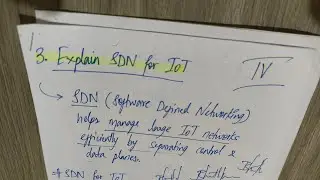 3. Explain SDN for IoT
IV
→ SDN (Software Defined Networking)
helps manage large IoT networks
efficiently by separating control &
data planes.
→ SDN for IoT